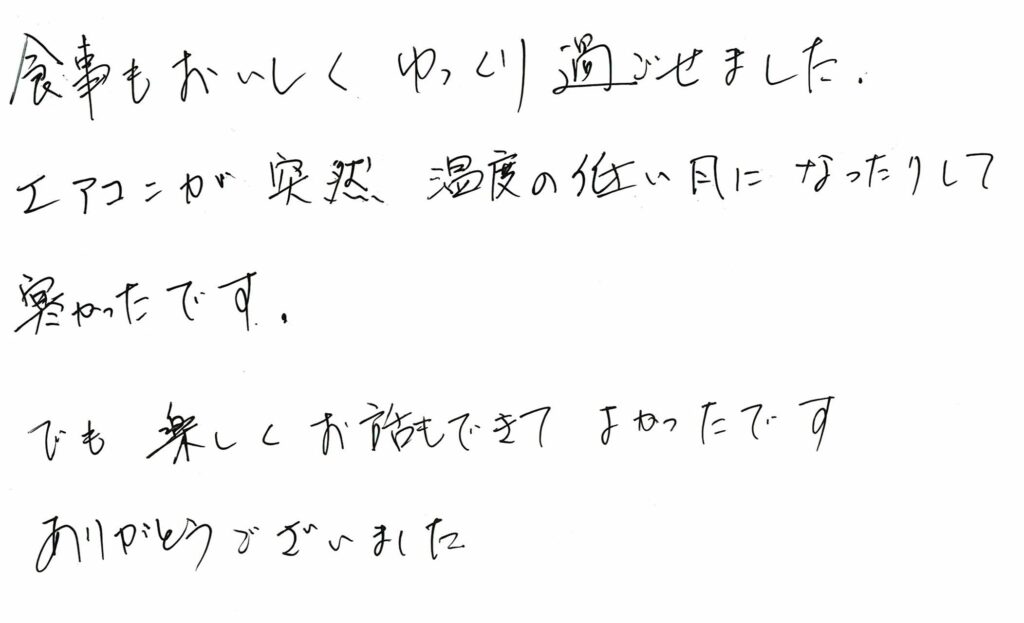 食事もおいしく ゆっくり 過ごせました.
エアコンが 突然 温度の低い風に なったりして
寒かったです.
でも 楽しく お話もできて よかったです
ありがとうございました